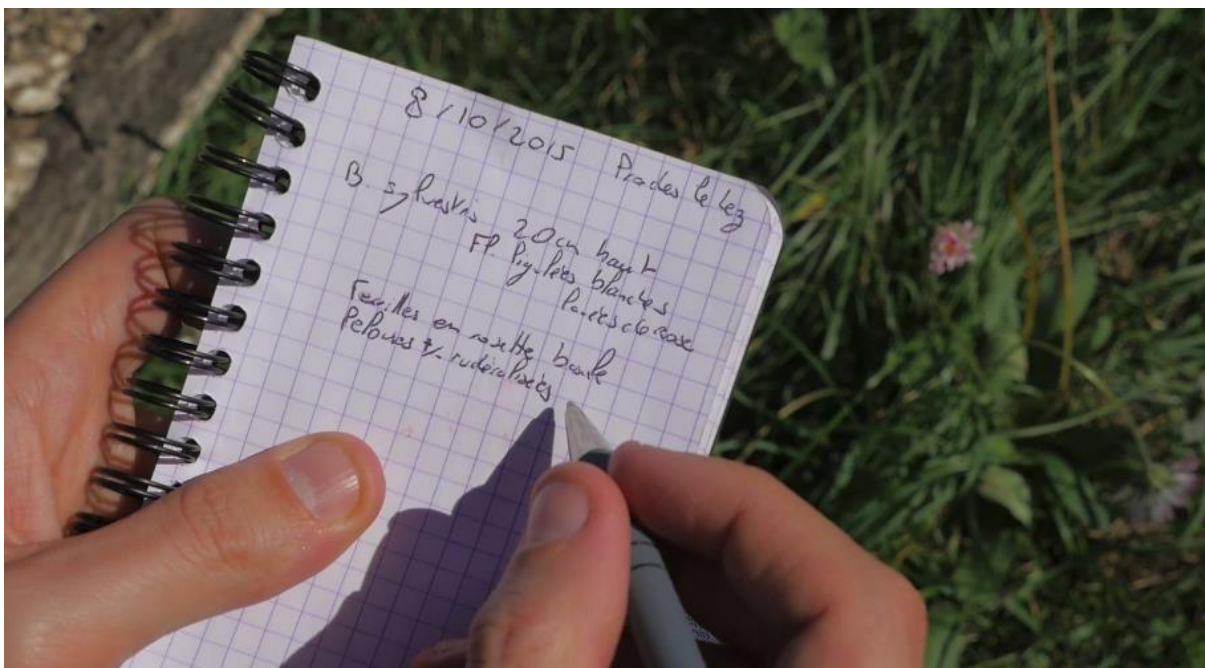 8/10/2015 Prades le Lez
B. sylvestris 20cm haut
Fl. ligulées blanches
lavées de rose
Feuilles en rosette basale
Pelouses +/- rudéralisées